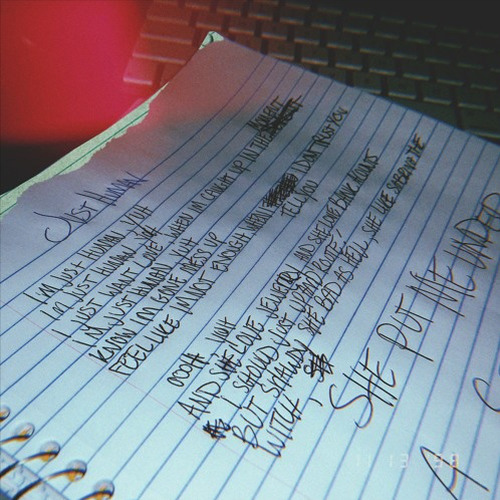 JUST HUMAN
I'M JUST HUMAN, YUH
I'M JUST HUMAN, YUH
I JUST WANT LOVE
I'M JUST HUMAN, WHEN I'M CAUGHT UP IN THE MOMENT
KNOW I'M GONE MESS UP
FEEL LIKE I'M NOT ENOUGH WHEN I TELL YOU I DON'T TRUST YOU
OOOH YUH
AND SHE LOVE JEWELRY AND SHE LOVE BANK ACCOUNTS
I SHOULD JUST UPEND ROUTE?
BUT SHAWDY SHE BAD AS HELL, SHE LIKE SABRINA THE
WITCH,
SHE PUT ME UNDER
A
11 13 '98